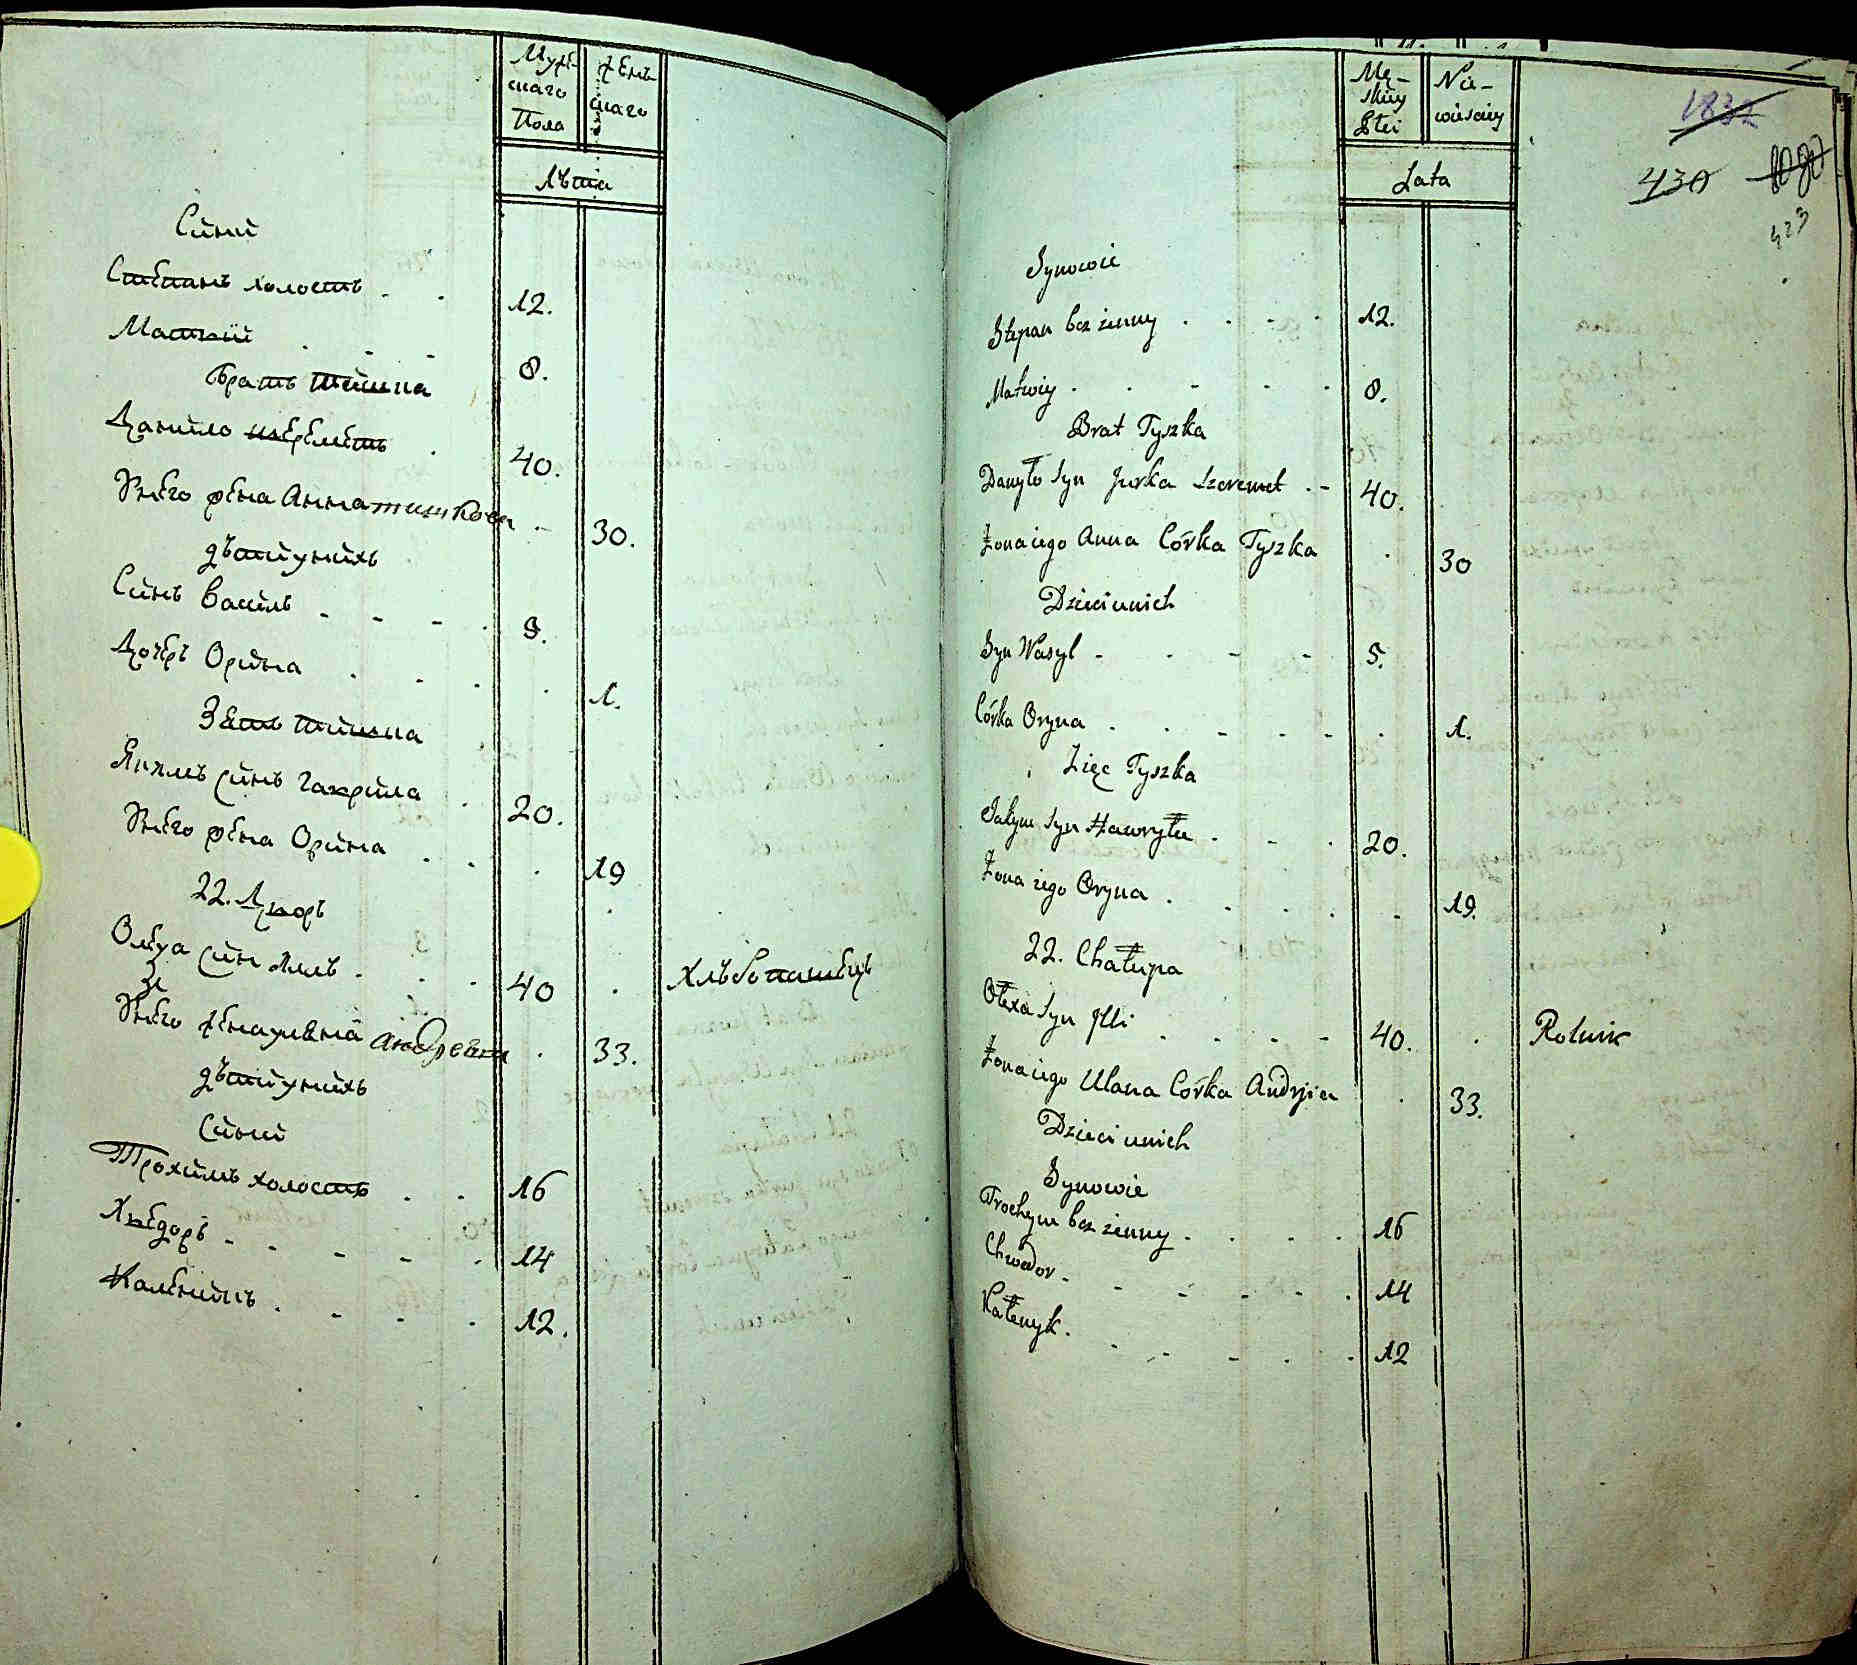 Мужскаго Пола
Женскаго
Лѣта
Сини
Степанъ холостъ 12.
Матвій 8.
Братъ Тишка
Данило 40.
Унего жена Анна тишкова 30.
дѣти унихъ
Синъ Василь 5.
Дочерь Орина 1.
Зеть Тишка
Якимъ синъ Гаврила 20.
Унего жена Орина 19
22. Дворъ
Олекса син Илиъ 40 Хлѣбопашецъ
Унего жена уляна андреева 33.
дѣти унихъ
Сини
Трохимъ холостъ 16
Хведоръ 14
Каленикъ 12.
Męskiey Płci
Niewieściey
Lata
1832
430 1080
423
Synowie
Stepan bez żenny 12.
Matwiy 8.
Brat Tyszka
Danyło Syn Jurka Szeremet 40.
Żona iego Anna Córka Tyszka 30
Dzieci unich
Syn Wasyl 5.
Córka Oryna 1.
Zięc Tyszka
Jakym Syn Hawryłu 20.
Żona iego Oryna 19.
22. Chałupa
Ołexa Syn Illi 40. Rolnik
Żona iego Ulana Córka Andrjia 33.
Dzieci unich
Synowie
Trochym bez żenny 16
Chwedor 14
Kałenyk. 12